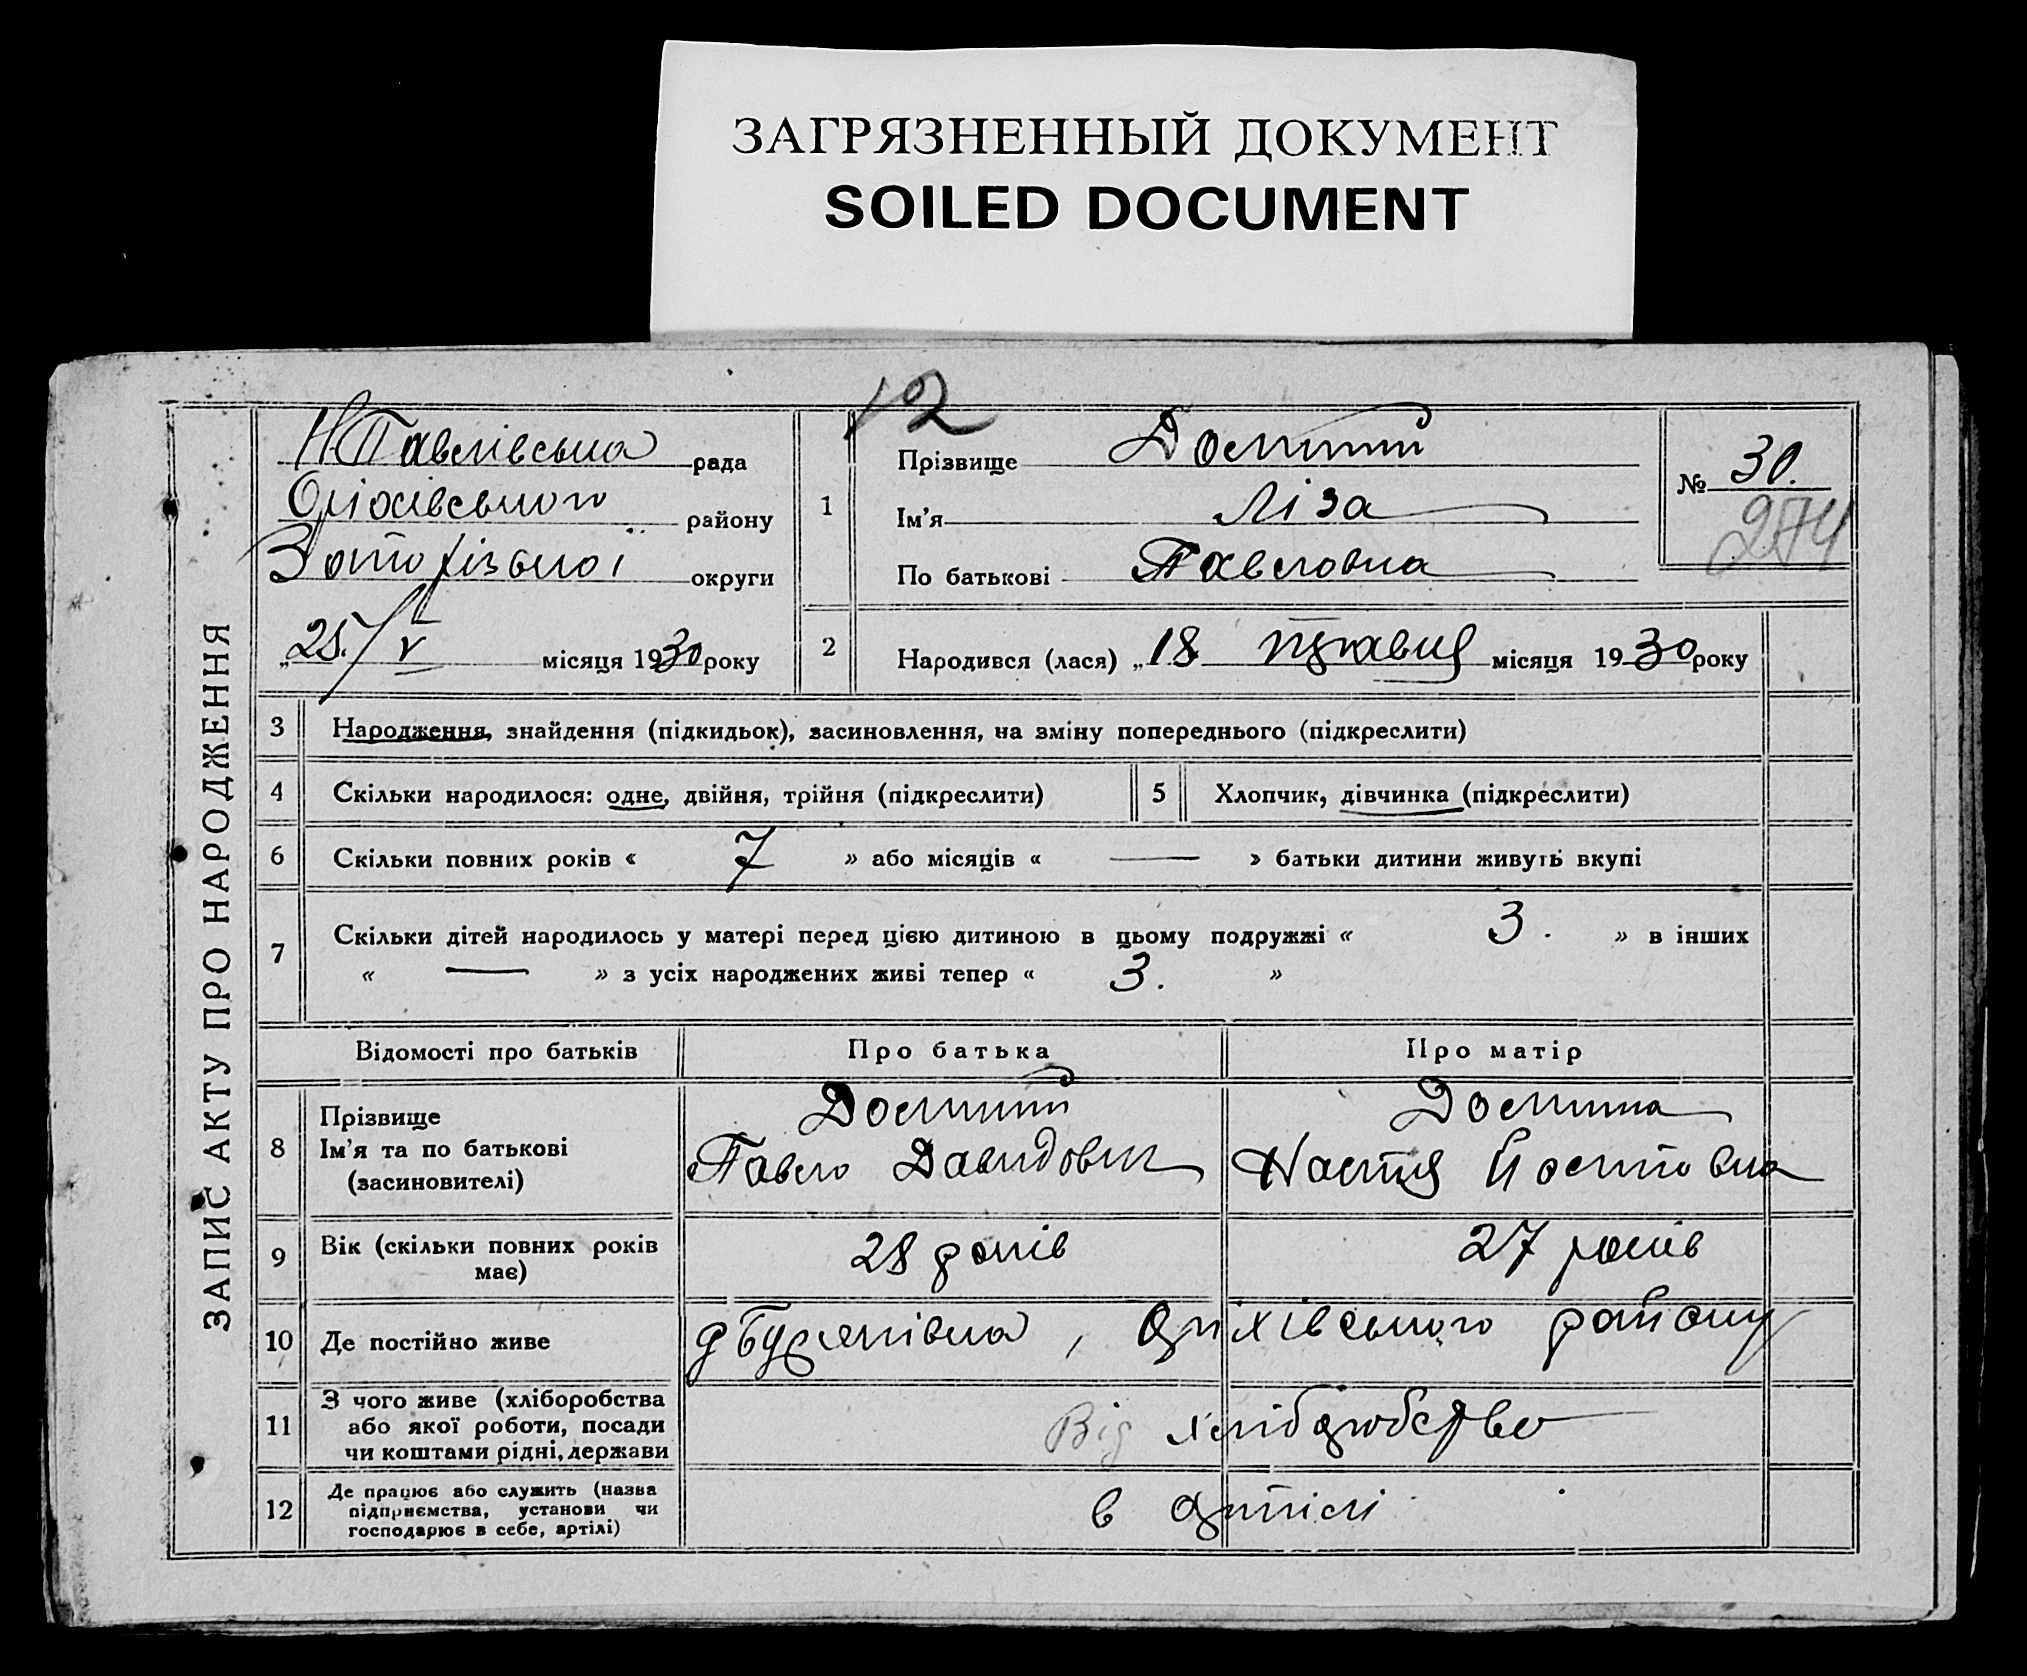 ЗАГРЯЗНЕННЫЙ ДОКУМЕНТ
SOILED DOCUMENT
12
ЗАПИС АКТУ ПРО НАРОДЖЕННЯ
Н Павлівська рада
Оріхівського району
Запорізької округи
„25/V місяця 1930 року
1
Прізвище
Ім'я Ліза
По батькові Павловна
№ 30.
274
2
Народився (лася) „18 травня місяця 1930 року
3 Народження, знайдення (підкидьок), засиновлення, на зміну попереднього (підкреслити)
4 Скільки народилося: одне, двійня, трійня (підкреслити)
5 Хлопчик, дівчинка (підкреслити)
6 Скільки повних років « 7 » або місяців « — » батьки дитини живуть вкупі
7 Скільки дітей народилось у матері перед цією дитиною в цьому подружжі « 3. » в інших
« — » з усіх народжених живі тепер « 3. »
Відомості про батьків
Про батька
Про матір
8
Прізвище
Ім'я та по батькові
(засиновителі)
Павло Давидович
Настя
9
Вік (скільки повних років
має)
28 років
27 років
10 Де постійно живе
Оріхівського району
11
З чого живе (хліборобства
або якої роботи, посади
чи коштами рідні, держави
Від хліборобство
12
Де працює або служить (назва
підприємства, установи чи
господарює в себе, артілі)
в артілі